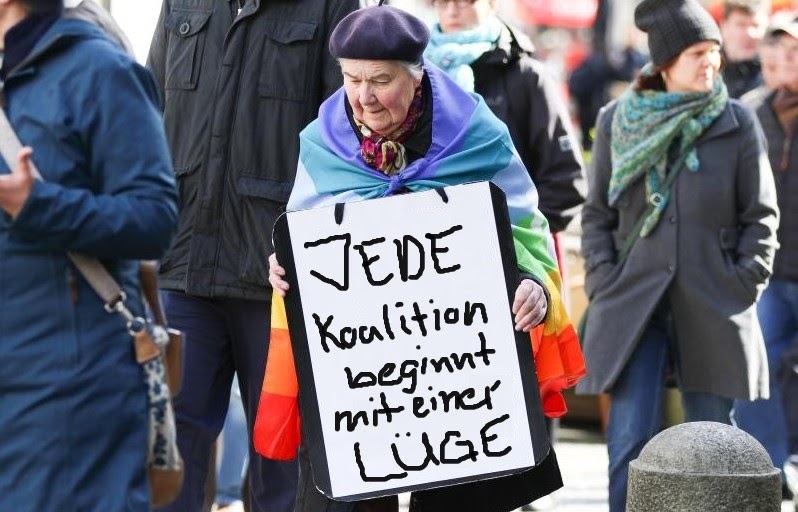 JEDE
Koalition
beginnt
mit einer
LÜGE